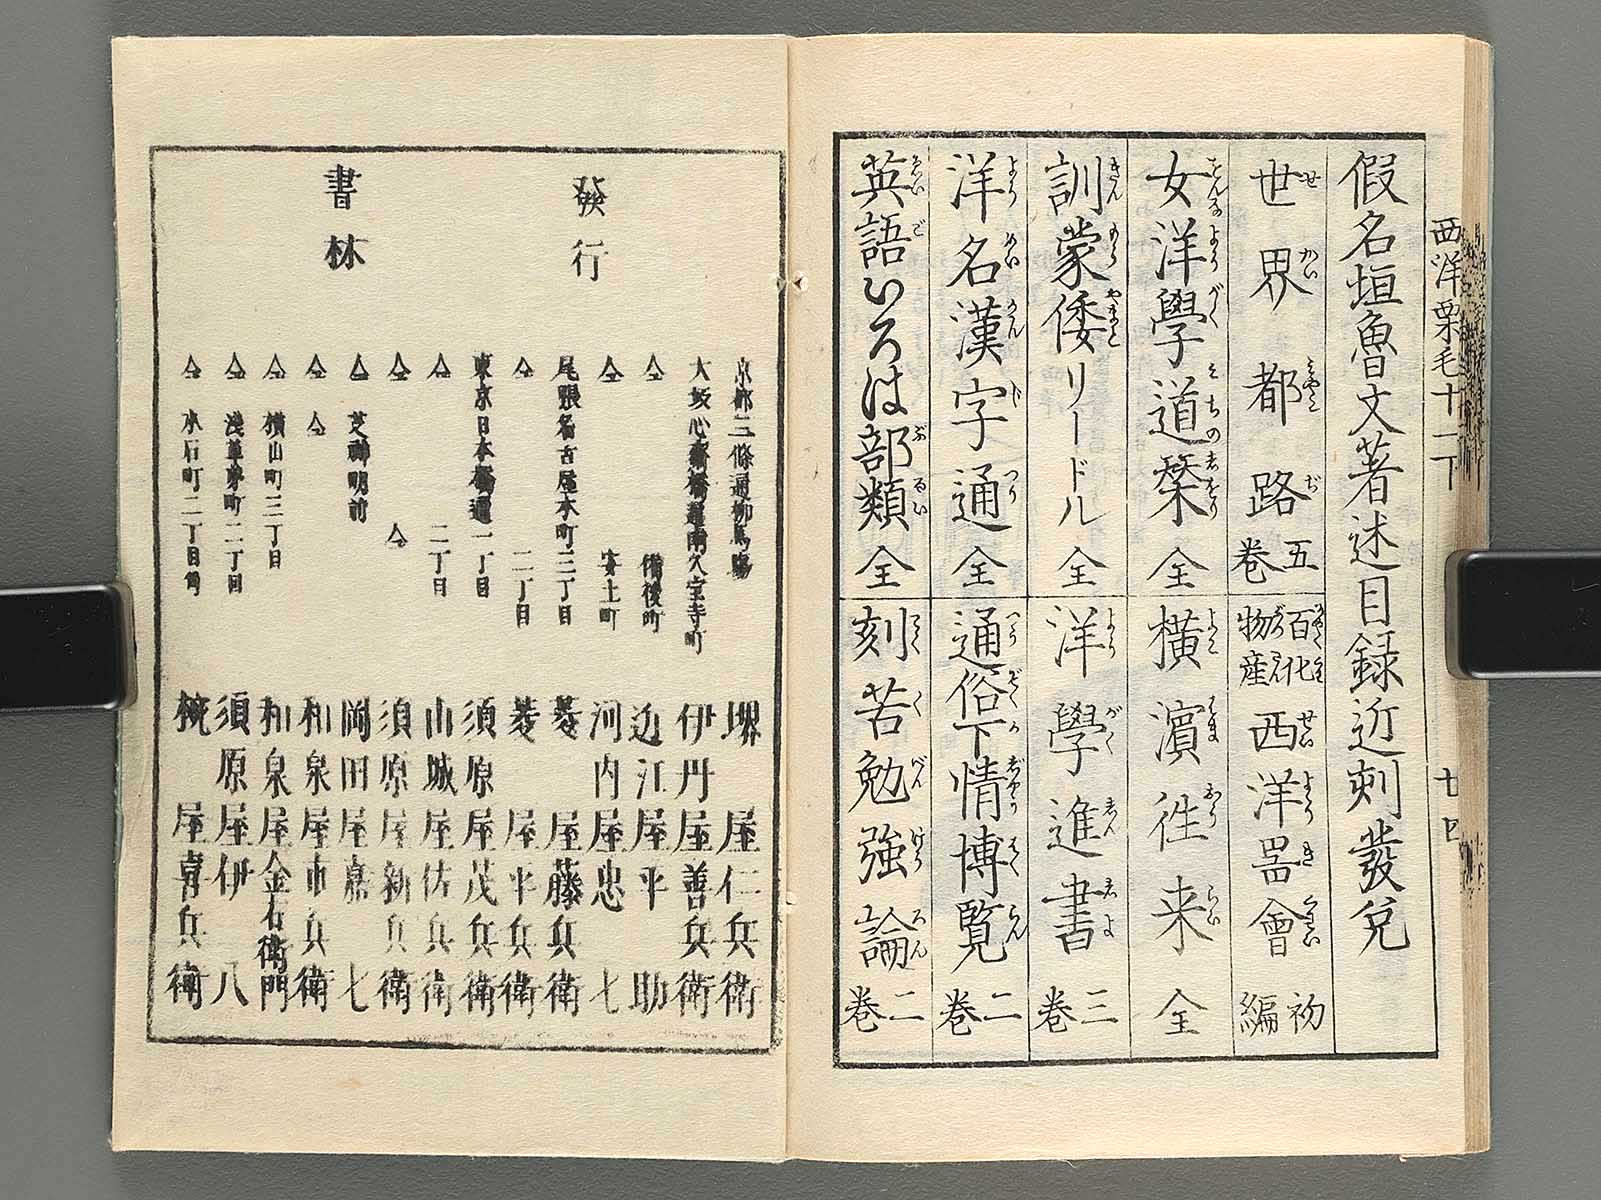 假名垣魯文著述目録近刻發兌
世界都路 五巻
女洋學道栞 全
訓蒙倭リードル 全
洋名漢字通 全
英語いろは部類 全
百化物産西洋噐會 初編
横濱徃来 全
洋學進書 三巻
通俗下情博覧 二巻
刻苦勉強論 二巻
西洋栗毛十二下
廿四
發行
書林
京都三條通柳馬塲 堺屋仁兵衛
大坂心齋橋通南久宝寺町 伊丹屋善兵衛
仝 備後町 近江屋平助
仝 安土町 河内屋忠七
尾張名古屋本町三丁目 菱屋藤兵衛
仝 二丁目 菱屋平兵衛
東京日本橋通一丁目 須原屋茂兵衛
仝 二丁目 山城屋佐兵衛
仝 仝 須原屋新兵衛
仝 芝神明前 岡田屋嘉七
仝 仝 和泉屋市兵衛
仝 横山町三丁目 和泉屋金右衛門
仝 淺草茅町二丁目 須原屋伊八
仝 本石町二丁目角 椀屋喜兵衛